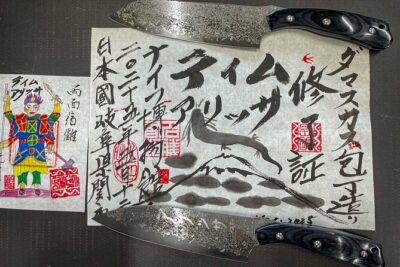 ダマスカス包丁造り
修了証
ティム
アリッサ
ナイフ博物館
二〇二十五年
日本國岐阜県関市
2025
ティム
アリッサ
両面宿儺